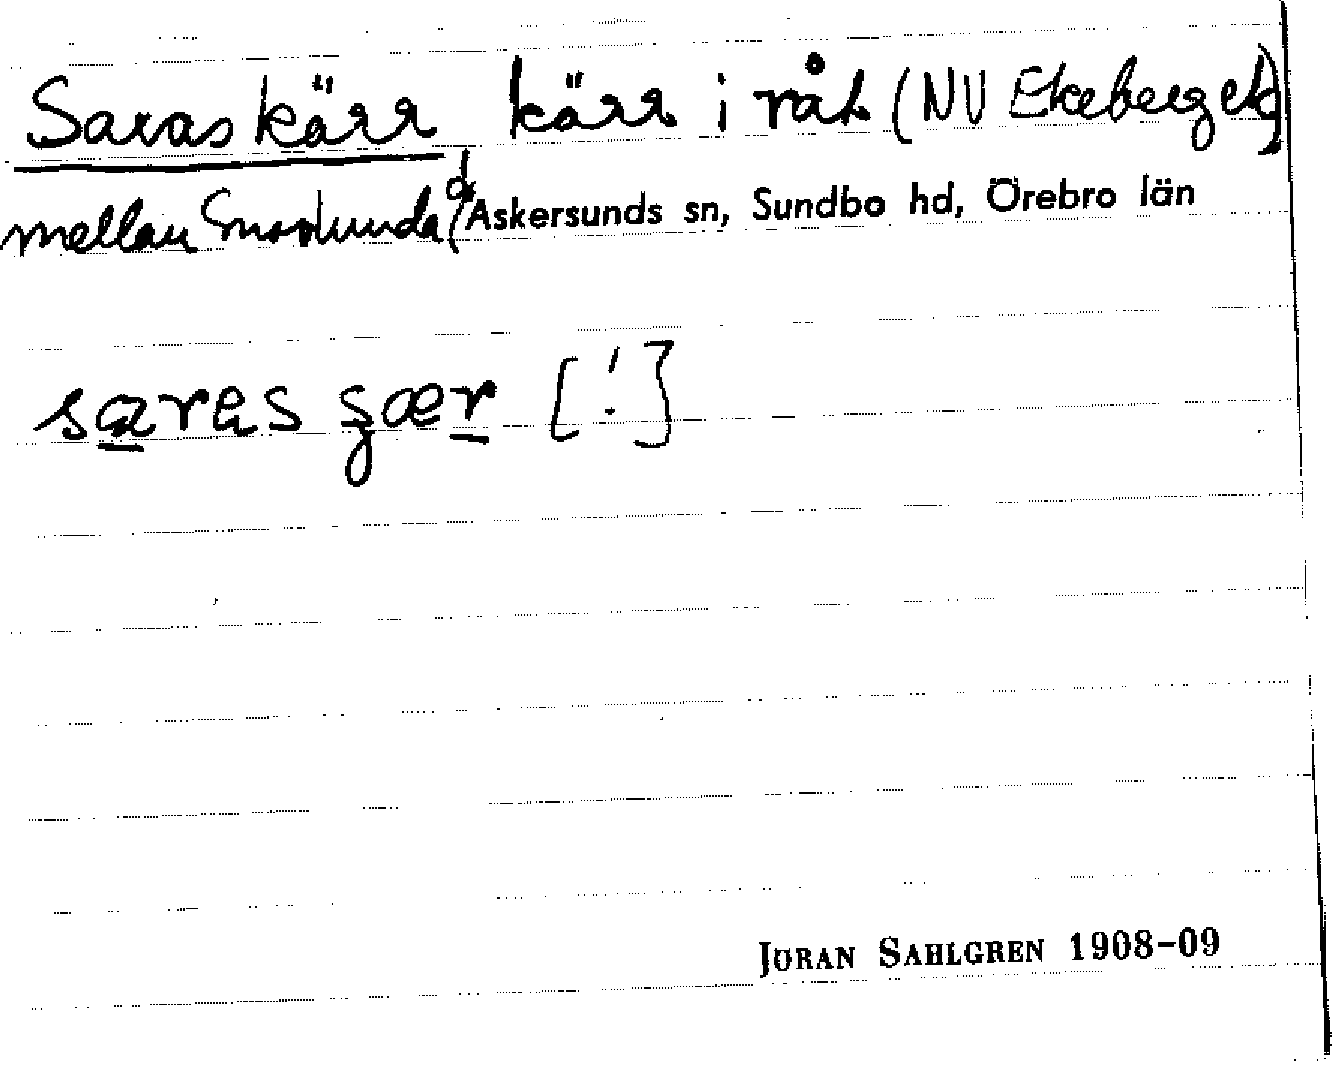 Saras kärr kärr i rå (NV Ekeberget)
mellan Askersunds sn, Sundbo hd, Örebro län
sares gær [!]
JÖRAN SAHLGREN 1908-09